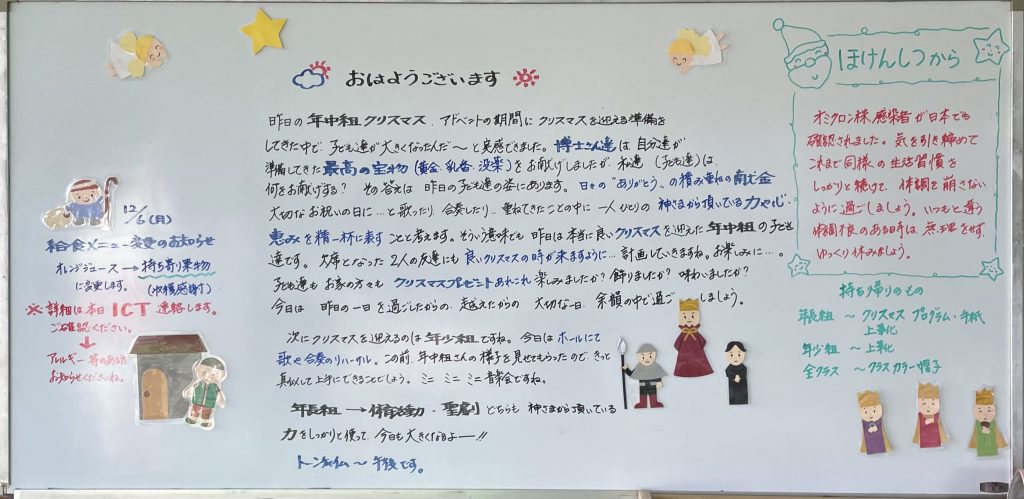 おはようございます
昨日の 年中組クリスマス. アドベントの期間に クリスマスを迎える準備を
してきた中で、子ども達が大きくなったんだ〜と実感できました。博士さん達は 自分達が
準備してきた 最高の宝物 (黄金、乳香、没薬) をお献げしましたが、私達 (子ども達)は、
何をお献げする? その答えは 昨日の子ども達の姿にあります。日々の "ありがとう"の積み重ねの 献金
大切なお祝いの日に…と歌ったり、合奏したり… 重ねてきたことの中に 一人ひとりの 神さまから頂いている力や心・
恵みを精一杯に表す ことと考えます。そういう意味でも 昨日は本当に良いクリスマスを迎えた 年中組の子ども
達です。欠席となった 2人の友達にも 良いクリスマスの時が来ますように… 計画していきますね。お楽しみに…。
子ども達も お家の方々も クリスマスプレゼントあれこれ 楽しみましたか? 飾りましたか? 味わいましたか?
今日は 昨日の一日を過ごしたからの、越えたからの 大切な一日. 余韻の中で過ごしましょう。
次にクリスマスを迎えるのは 年少組ですね。今日は ホールにて
歌や合奏のリハーサル。この前、年中組さんの様子を見せてもらったので、きっと
真似して上手にできることでしょう。ミニ ミニ ミニ音楽会ですね。
年長組 → 体育活動・聖劇 どちらも 神さまから頂いている
力をしっかりと使って 今日も大きくなるよ——!!
〜 午後です。
12/6 (月)
給食メニュー変更のお知らせ
オレンジジュース → 持ち寄り果物
に変更します。 (収穫感謝)
※ 詳細は本日 ICT 連絡します。
ご確認ください。
アレルギー等のある方
お知らせくださいね。
ほけんしつから
オミクロン株感染者が日本でも
確認されました。気を引き締めて
これまで同様の生活習慣を
しっかりと続けて、体調を崩さない
ように過ごしましょう。いつもと違う
体調不良のある時は 無理をせず、
ゆっくり休みましょう。
持ち帰りのもの
年長組 〜 クリスマス プログラム・手紙
上靴
年少組 〜 上靴
全クラス 〜 クラスカラー帽子